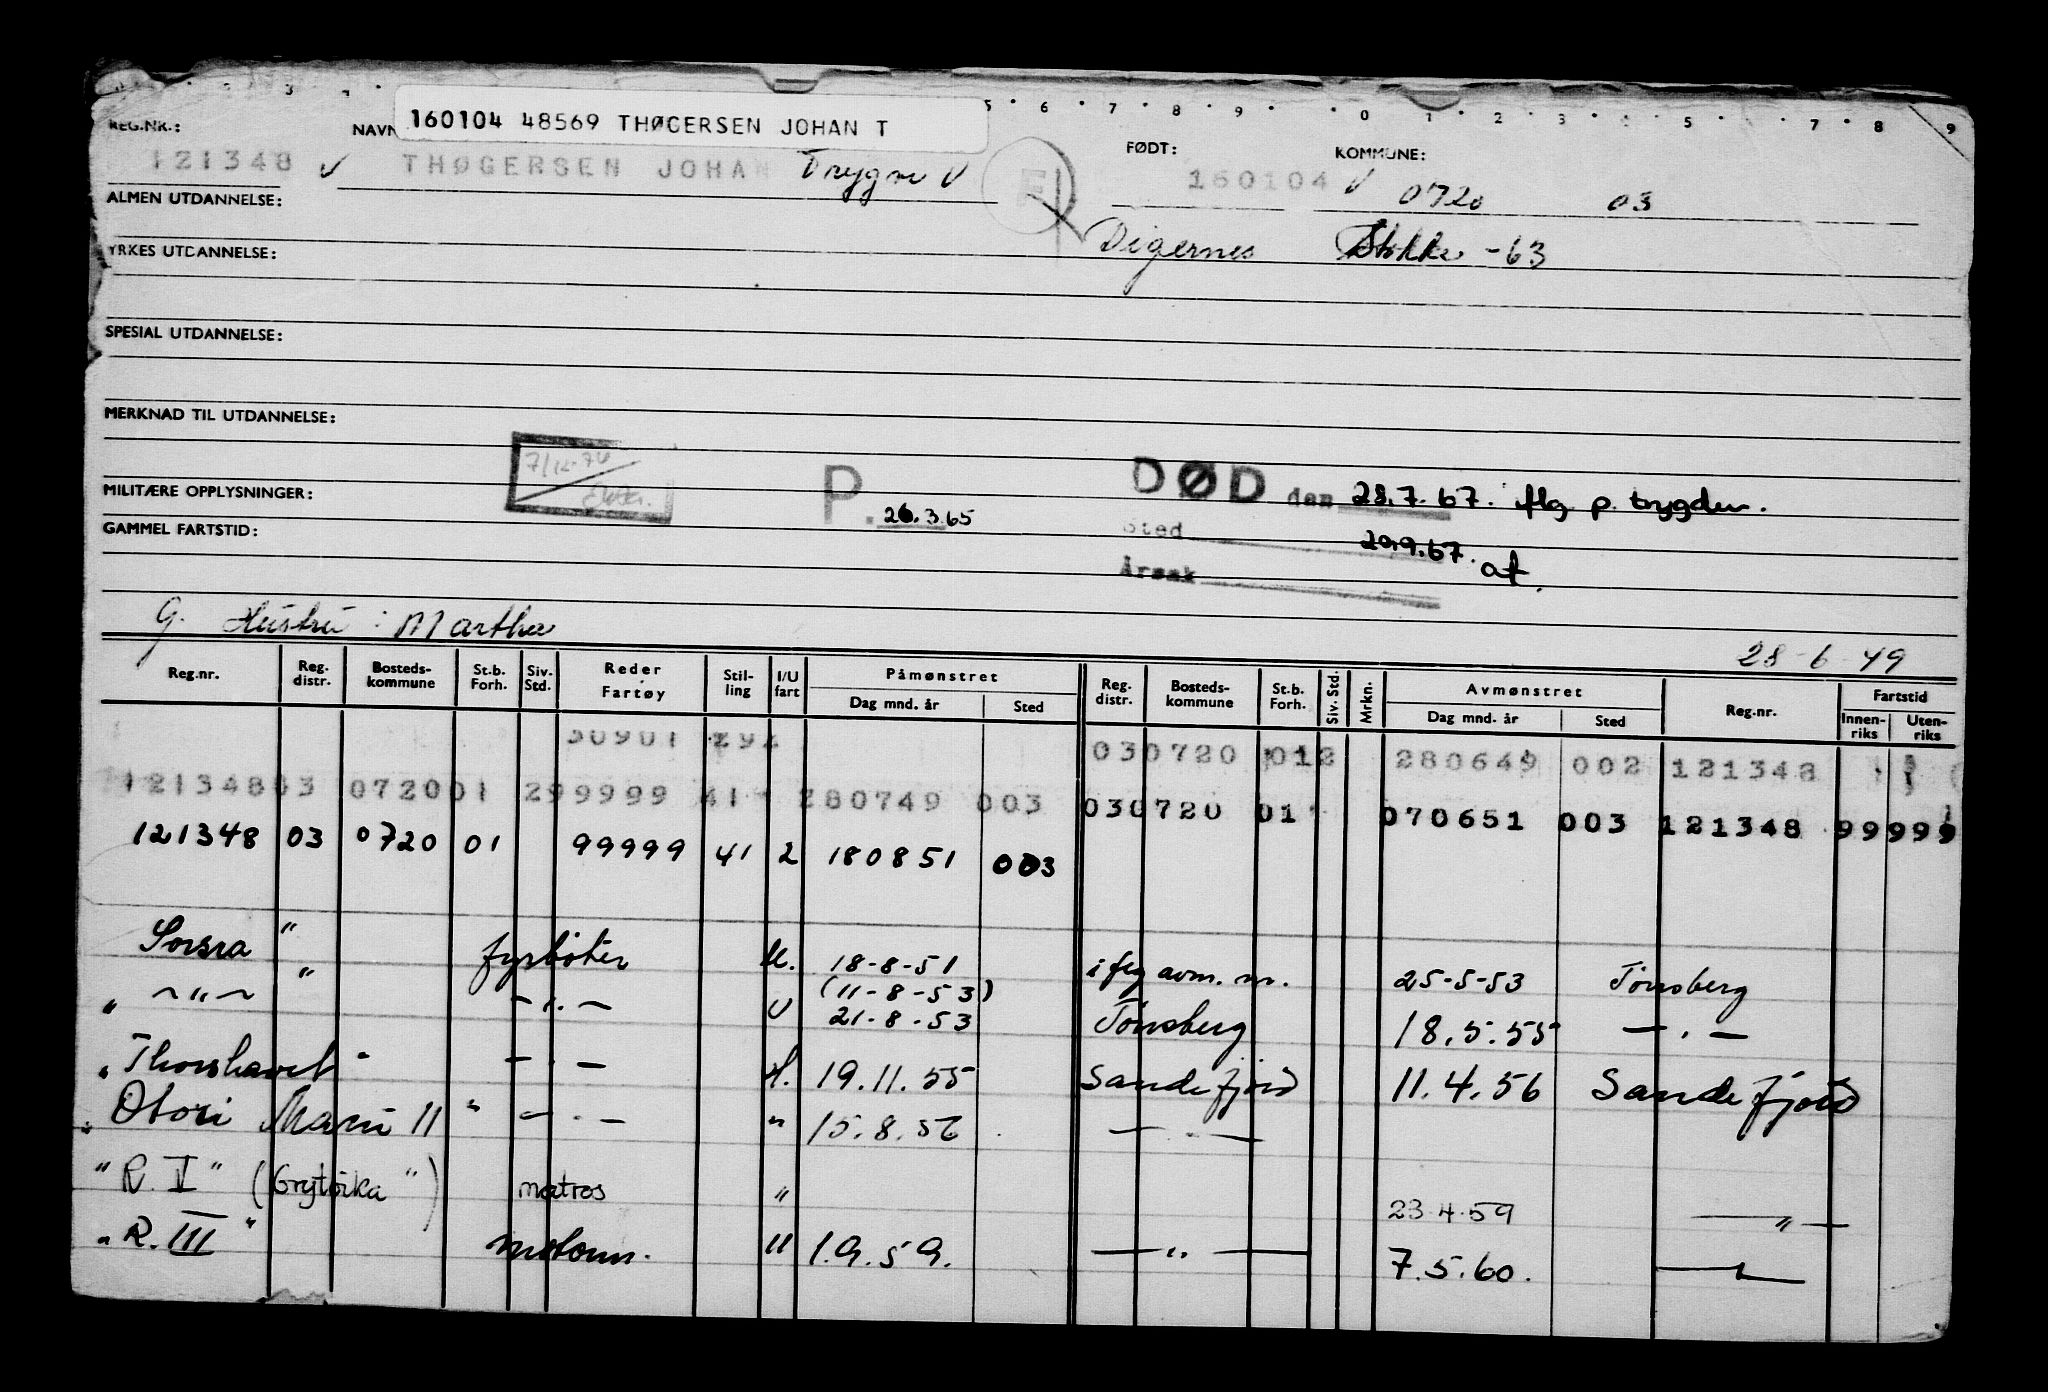 160104 48569 THØGERSEN JOHAN T
REG.NR.: NAVN FØDT: KOMMUNE:
121348 V THØGERSEN JOHAN Trygve V 160104 V 0720 03
ALMEN UTDANNELSE:
Digernes Stokke -63
YRKES UTDANNELSE:
SPESIAL UTDANNELSE:
MERKNAD TIL UTDANNELSE:
MILITÆRE OPPLYSNINGER:
P. 26.3.65
DØD den 28.7.67. flg p. trygden.
GAMMEL FARTSTID:
Sted 20.9.67. at.
Årsak
G. Hustru: Martha
28-6-49
Reg.nr. Reg. distr. Bosteds-kommune St.b. Forh. Siv. Std. Reder - Fartøy Stil-ling I/U fart Påmønstret Dag mnd. år Sted Reg. distr. Bosteds-kommune St.b. Forh. Siv. Std. Mrkn. Avmønstret Dag mnd. år Sted Reg.nr. Fartstid Innen-riks Uten-riks
30901 292 030720 012 280649 002 121348
12134803 072001 299999 41 280749 003 030720 01 070651 003 121348 99999
121348 03 0720 01 99999 41 2 180851 003
Sorsra " fyrbøter U. 18-8-51 i flg avm. m. 25-5-53 Tønsberg
" -"- " -"- U (11-8-53) 21-8-53 Tønsberg 18.5.55 -"-
"Thorshavet" -"- U. 19.11.55 Sandefjord 11.4.56 Sandefjord
"Otori Maru 11" -"- " 15.8.56 -"-
"R. V" (Grytvika") matros " 23.4.59 -"-
"R. III" motorm. " 1.9.59. -"- 7.5.60. -"-